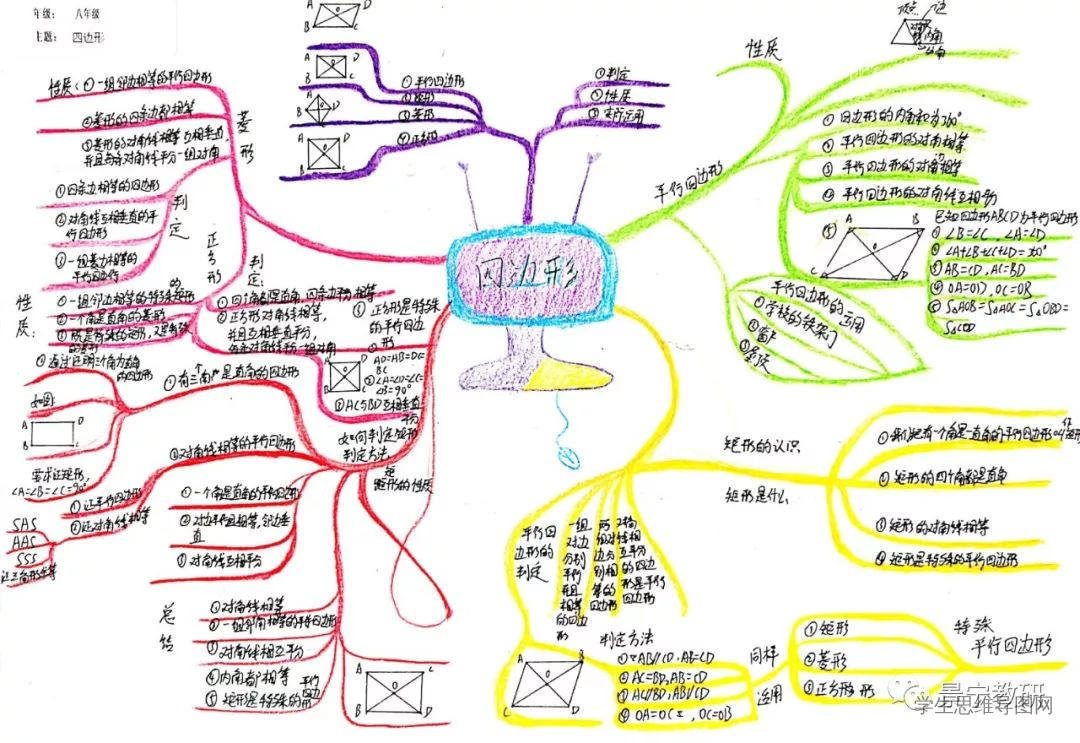 年级: 八年级
主题: 四边形
四边形
①平行四边形
②矩形
③菱形
④正方形
①判定
②性质
③实际应用
平行四边形
性质
顶点
边
①四边形的内角和为360°
②平行四边形的对角相等
③平行四边形的对角相等
④平行四边形的对角线互相平分
已知四边形ABCD为平行四边形
①∠B=∠C,∠A=∠D
②∠A+∠B+∠C+∠D=360°
③AB=CD,AC=BD
④OA=OD,OC=OB
⑤S△AOB=S△AOC=S△OBD=
S△COD
平行四边形的应用
①学校的铁架门
②窗户
矩形的认识
矩形是什么
②矩形的四个角都是直角
③矩形的对角线相等
④矩形是特殊的平行四边形
平行四边形的判定
一组对边分别平行且相等的四边形
两组对边分别相等的四边形
对角线相互平分的四边形是平行四边形
判定方法
①∵AB//CD,AB=CD
②AC=BD,AB=CD
③AC//BD,AB//CD
④OA=OC=,OC=OB
同样
运用
①矩形
②菱形
③正方形
特殊
平行四边形
菱形
性质:①一组邻边相等的平行四边形
②菱形的四条边都相等
③菱形的对角线相等互相垂直
并且每条对角线平分一组对角
判定
①四条边相等的四边形
②对角线互相垂直的平
行四边形
③一组邻边相等的
平行四边形
正方形的
性质:
①一组邻边相等的特殊矩形
②一个角是直角的菱形
③既是特殊的矩形,又是特殊
的菱形
判定:
①四个角都是直角,四条边平分相等
②正方形对角线相等,
并且互相垂直平分,
每条对角线平分一组对角
①正方形是特殊
的平行四边
形
AD=AB=DC=
BC
②∠A=∠D=∠C=
∠B=90°
③AC与BD互相垂直
平分
如何判定矩形
判定方法
矩形的性质
①有三个角是直角的四边形
②通过证明三个角为直角
的四边形
如图
要求证矩形,
∠A=∠B=∠C=90°
②对角线相等的平行四边形
①证平行四边形
②证对角线相等
SAS
AAS
SSS
证三角形全等
①一个角是直角的平行四边形
②对边平行且相等,邻边垂
直
③对角线互相平分
总结
①对角线相等
②一组邻角相等的平行四边形
③对角线相互平分
④内角都相等
⑤矩形是特殊的平行四边形
景宁教研
学生思维导图网